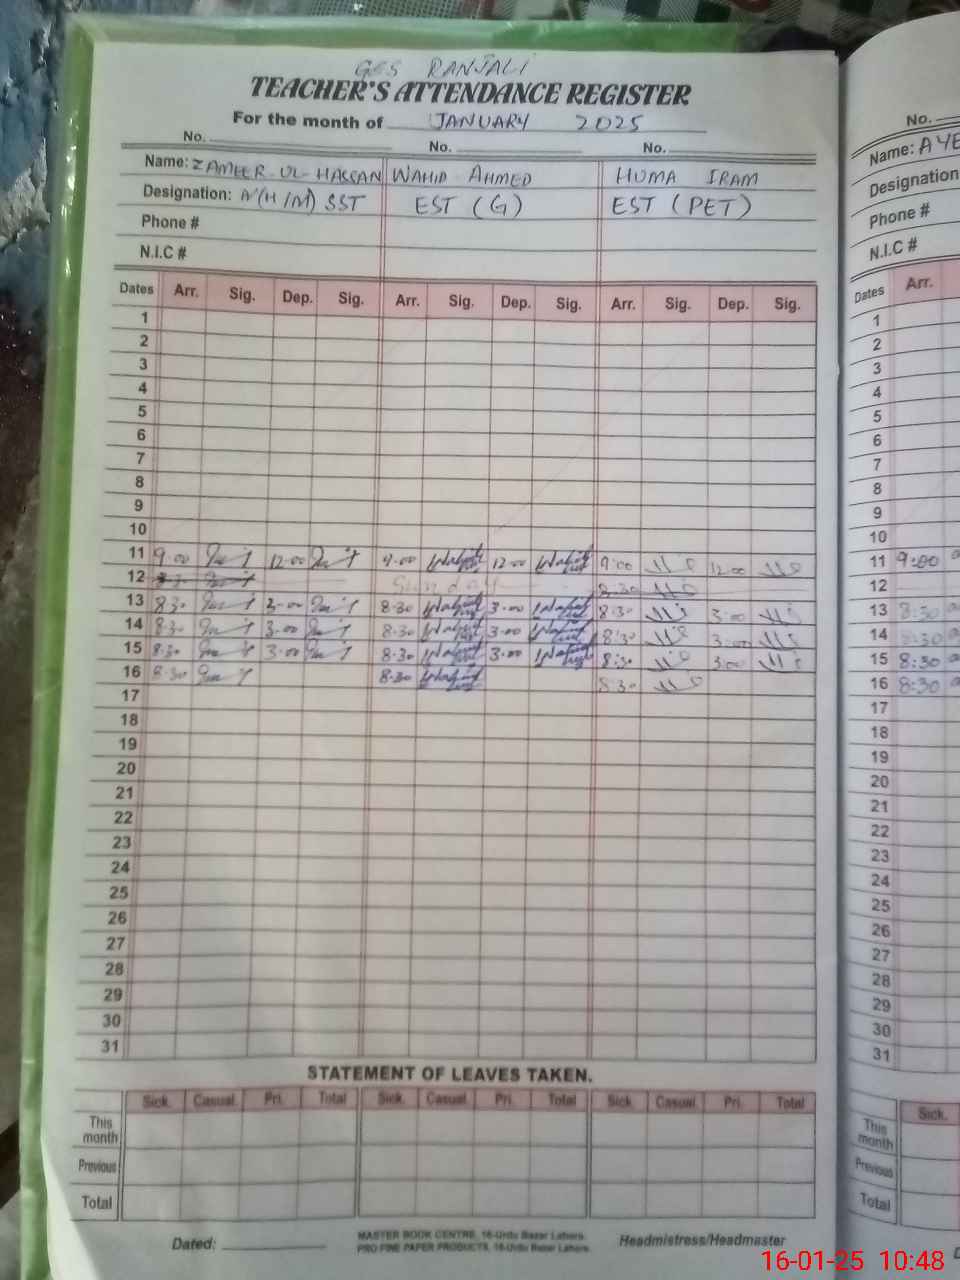 GES RANJALI
TEACHER'S ATTENDANCE REGISTER
For the month of JANUARY 2025
No. No. No.
Name: ZAMEER-UL-HASSAN WAHID AHMED HUMA IRAM
Designation: (H/M) SST EST (G) EST (PET)
Phone #
N.I.C #
Dates Arr. Sig. Dep. Sig. Arr. Sig. Dep. Sig. Arr. Sig. Dep. Sig.
1
2
3
4
5
6
7
8
9
10
11 9:00 12:00 9:00 12:00 9:00 12:00
12 8:30 Sunday 8:30
13 8:30 3:00 8:30 3:00 8:30 3:00
14 8:30 3:00 8:30 3:00 8:30 3:00
15 8:30 3:00 8:30 3:00 8:30 3:00
16 8:30 8:30 8:30
17
18
19
20
21
22
23
24
25
26
27
28
29
30
31
STATEMENT OF LEAVES TAKEN.
Sick. Casual. Pri. Total Sick. Casual. Pri. Total Sick. Casual. Pri. Total
This month
Previous
Total
Dated: MASTER BOOK CENTRE, 16-Urdu Bazar Lahore. Headmistress/Headmaster
PRO FINE PAPER PRODUCTS, 16-Urdu Bazar Lahore.
No.
Name: AYE
Designation
Phone #
N.I.C #
Dates Arr.
1
2
3
4
5
6
7
8
9
10
11 9:00
12
13 8:30
14 8:30
15 8:30
16 8:30
17
18
19
20
21
22
23
24
25
26
27
28
29
30
31
Sick.
This month
Previous
Total
16-01-25 10:48